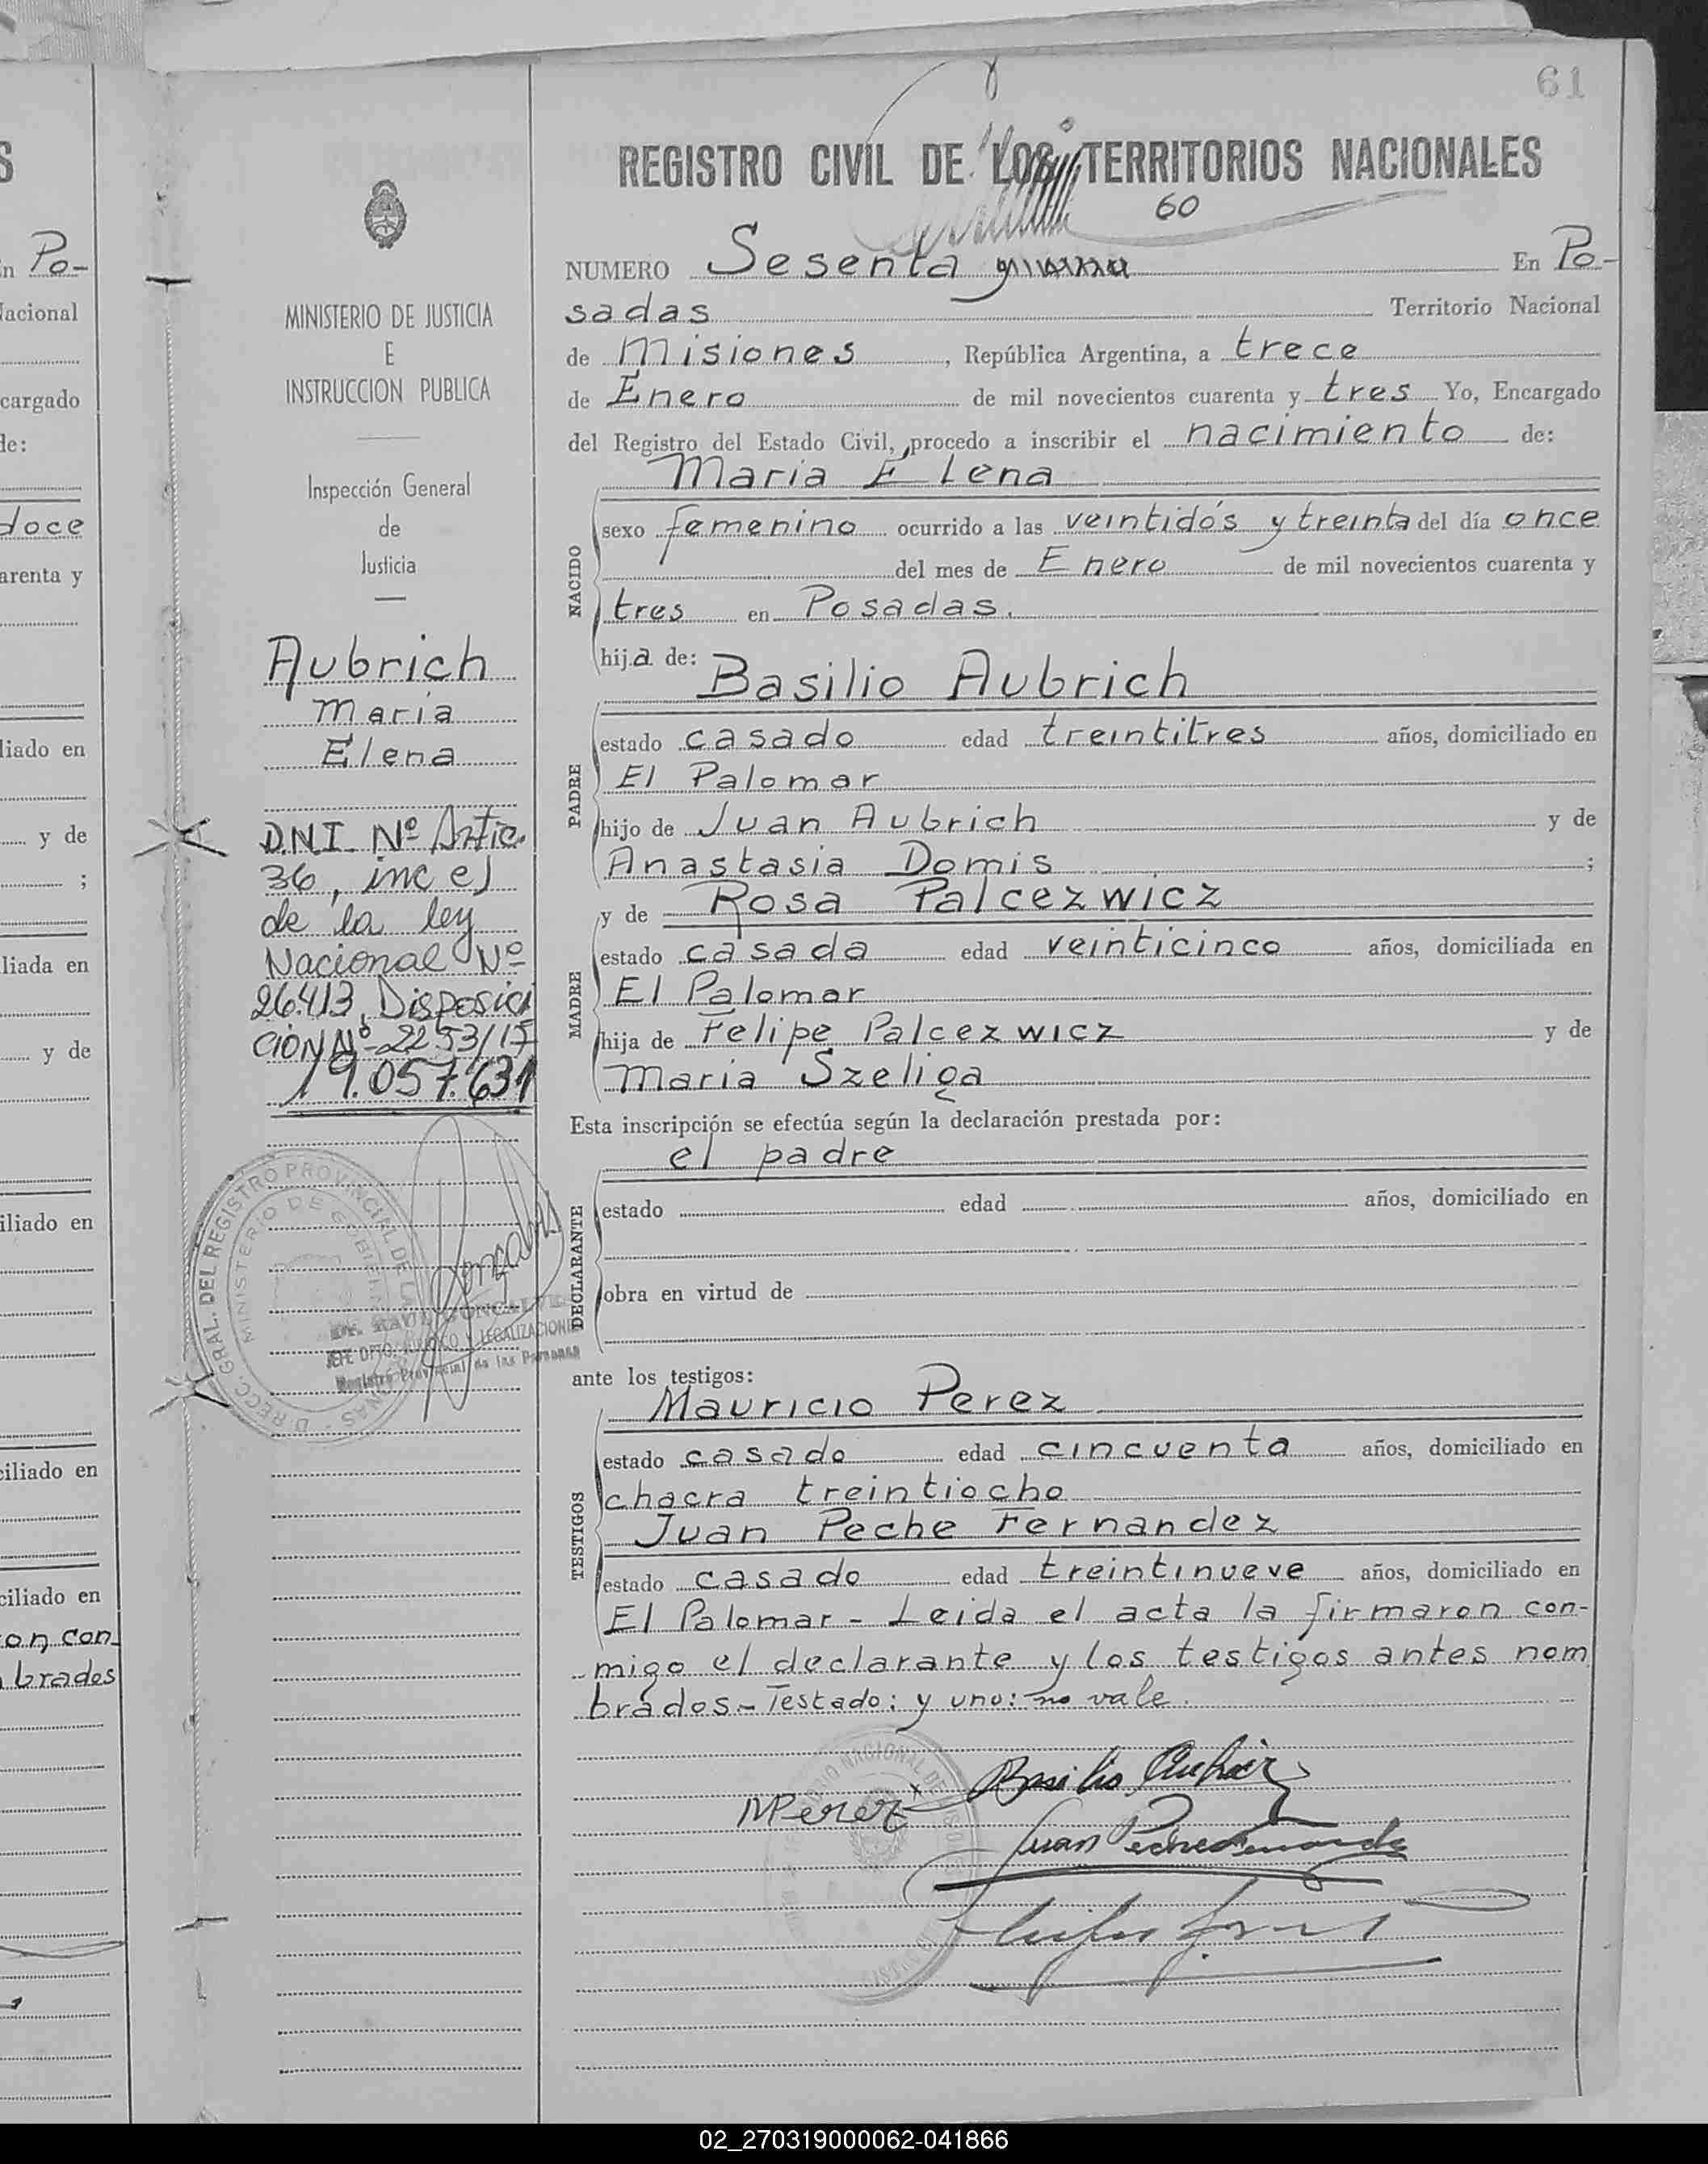 61
REGISTRO CIVIL DE LOS TERRITORIOS NACIONALES
60
NUMERO Sesenta y uno En Po-
sadas Territorio Nacional
de Misiones, República Argentina, a trece
de Enero de mil novecientos cuarenta y tres Yo, Encargado
del Registro del Estado Civil, procedo a inscribir el nacimiento de:
Maria Elena
NACIDO
sexo femenino ocurrido a las veintidós y treinta del día once
del mes de Enero de mil novecientos cuarenta y
tres en Posadas.
hija de:
Basilio Aubrich
PADRE
estado casado edad treintitres años, domiciliado en
El Palomar
hijo de Juan Aubrich y de
Anastasia Domis ;
y de Rosa Palcezwicz
MADRE
estado casada edad veinticinco años, domiciliada en
El Palomar
hija de Felipe Palcezwicz y de
Maria Szeliga
Esta inscripción se efectúa según la declaración prestada por:
el padre
DECLARANTE
estado edad años, domiciliado en
obra en virtud de
ante los testigos:
Mauricio Perez
TESTIGOS
estado casado edad cincuenta años, domiciliado en
chacra treintiocho
Juan Peche Fernandez
estado casado edad treintinueve años, domiciliado en
El Palomar - Leida el acta la firmaron con-
migo el declarante y los testigos antes nom
brados - Testado: y uno: no vale.
Basilio Aubrich
MPerez
Juan Peche Fernandez
MINISTERIO DE JUSTICIA
E
INSTRUCCION PUBLICA
Inspección General
de
Justicia
Aubrich
Maria
Elena
D.N.I. Nº Artic.
36, inc e)
de la ley
Nacional Nº
26.413, Disposici
ción Nº 2253/15
19.057.631
DIRECC. GRAL. DEL REGISTRO PROVINCIAL DE LAS PERSONAS
MINISTERIO DE GOBIERNO
JEFE DPTO. JURIDICO Y LEGALIZACIONES
Registro Provincial de las Personas
n Po-
Nacional
cargado
de:
doce
arenta y
liado en
y de
;
liada en
y de
iliado en
ciliado en
ciliado en
on con-
brados
02_270319000062-041866